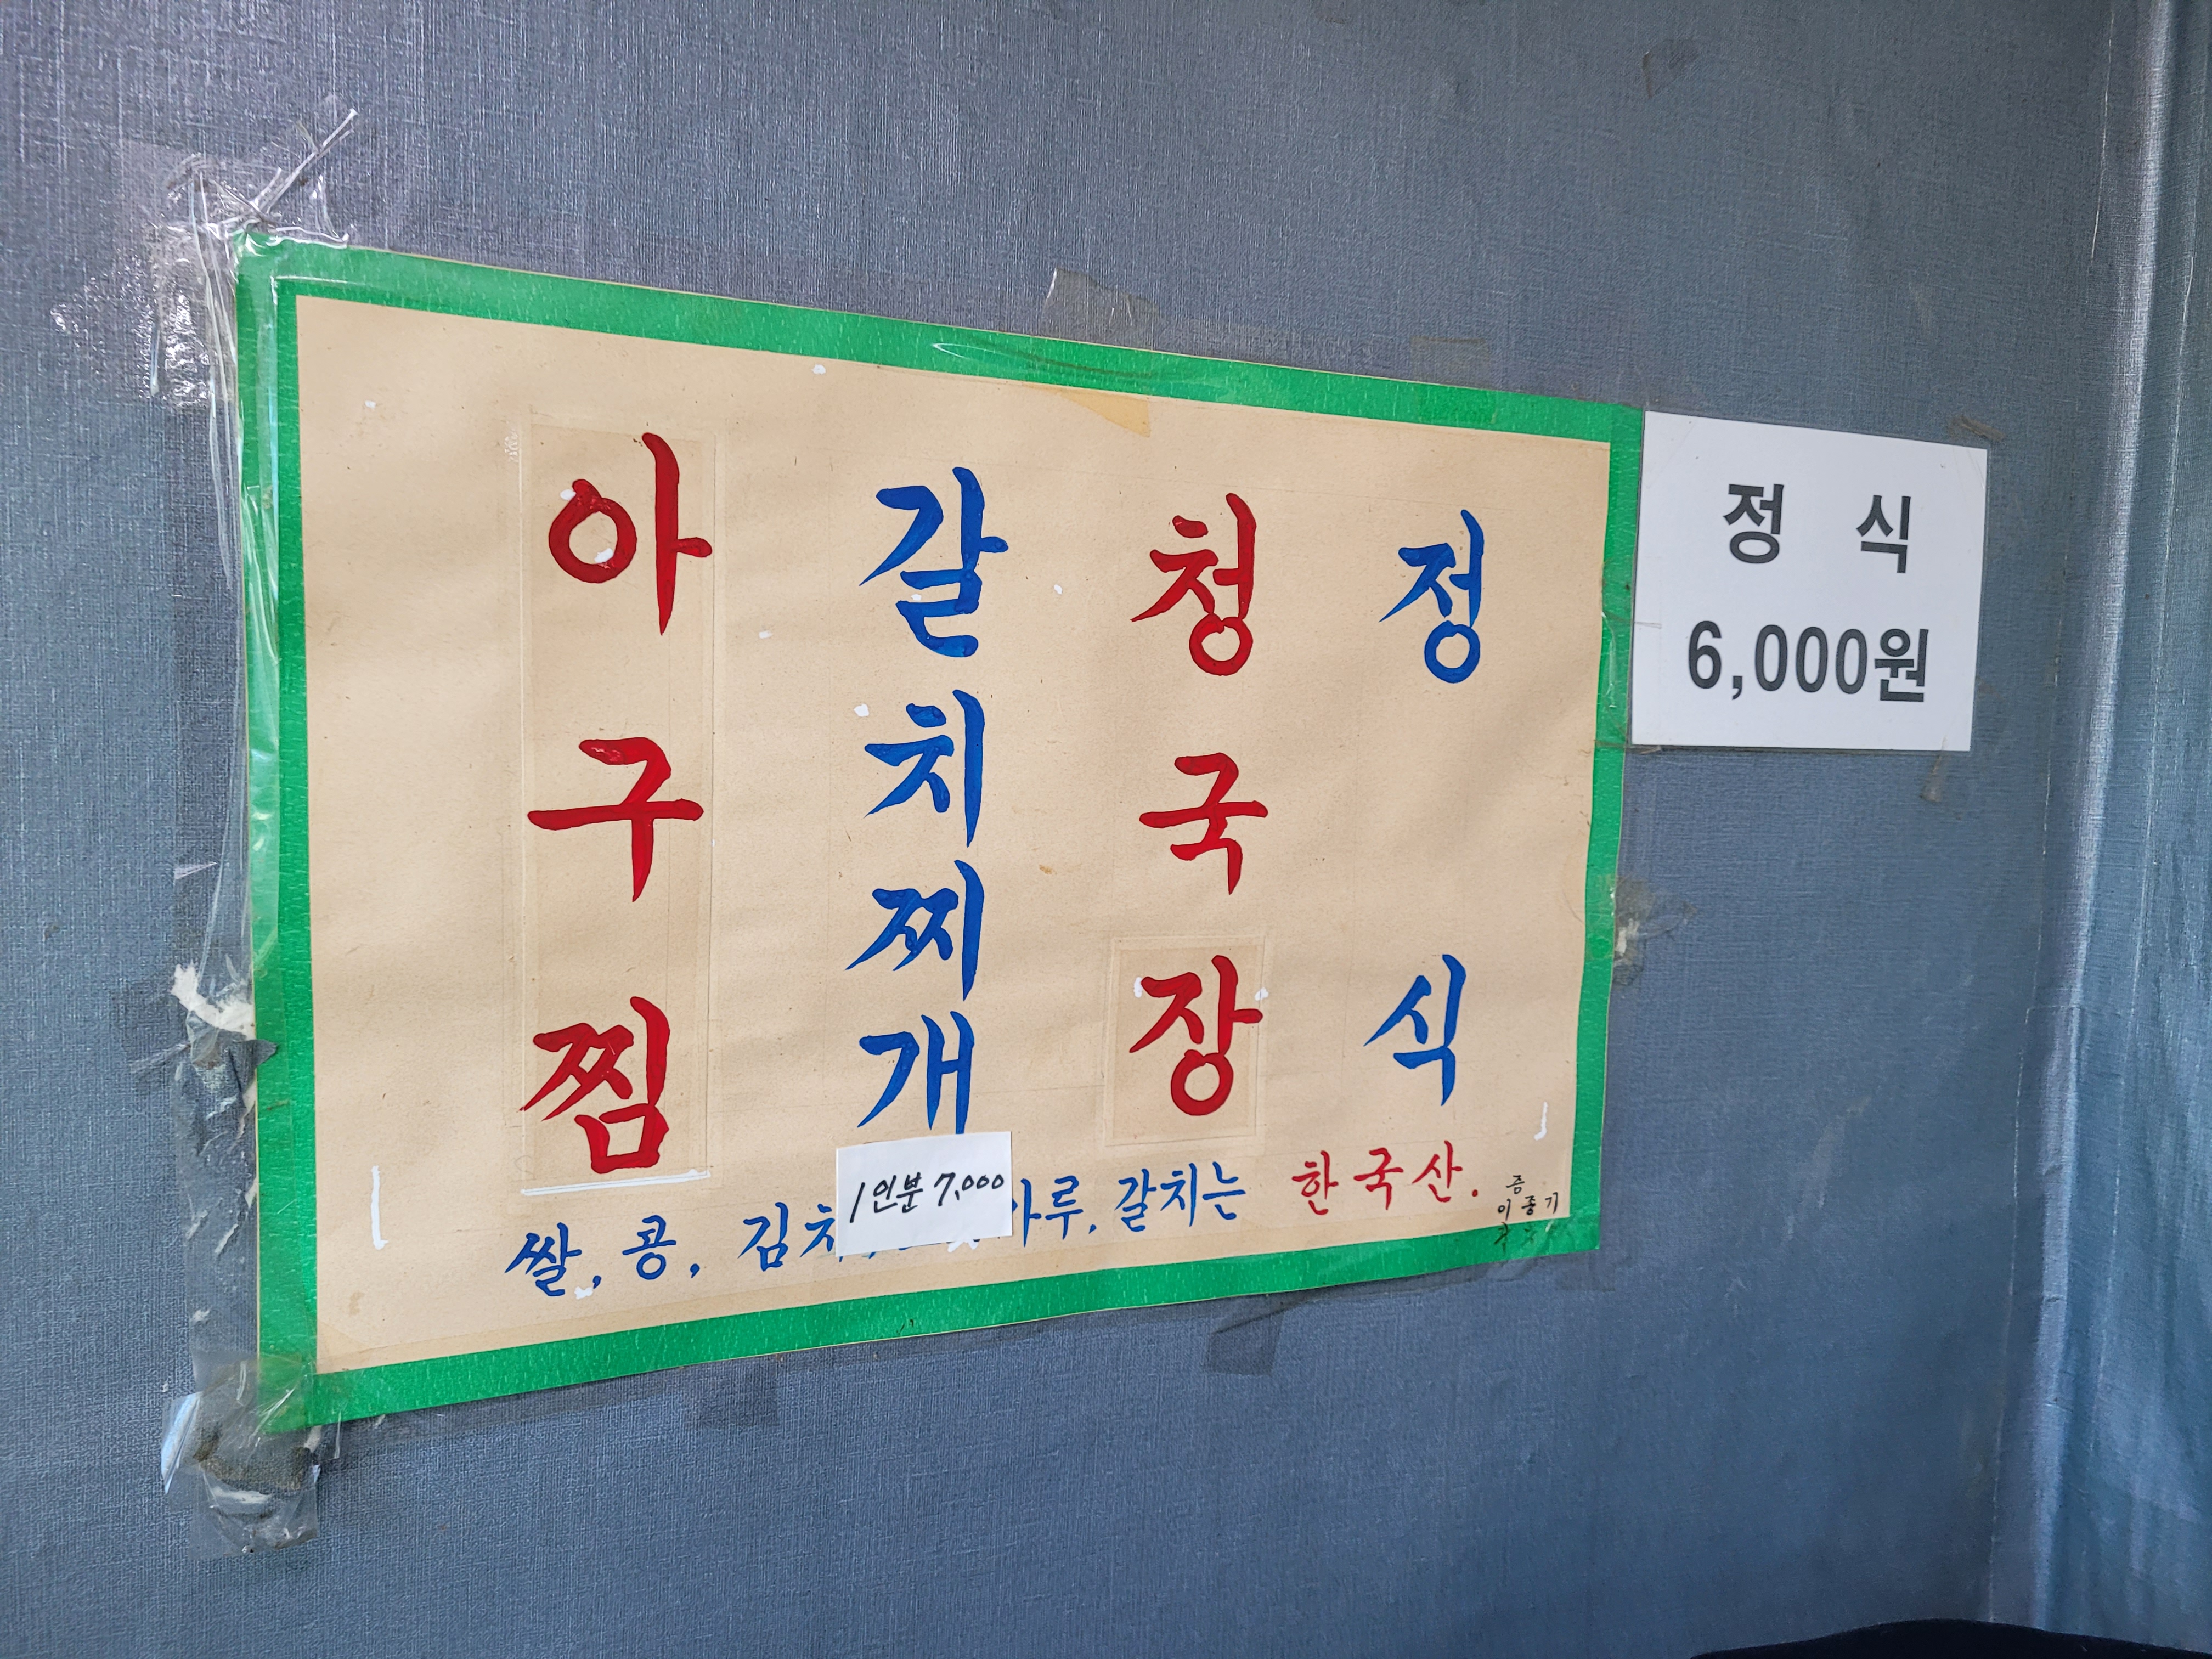 아구찜
갈치찌개
청국장
정식
1인분 7,000
쌀, 콩, 김치, 루, 갈치는 한국산.
증
이종기
정 식
6,000원